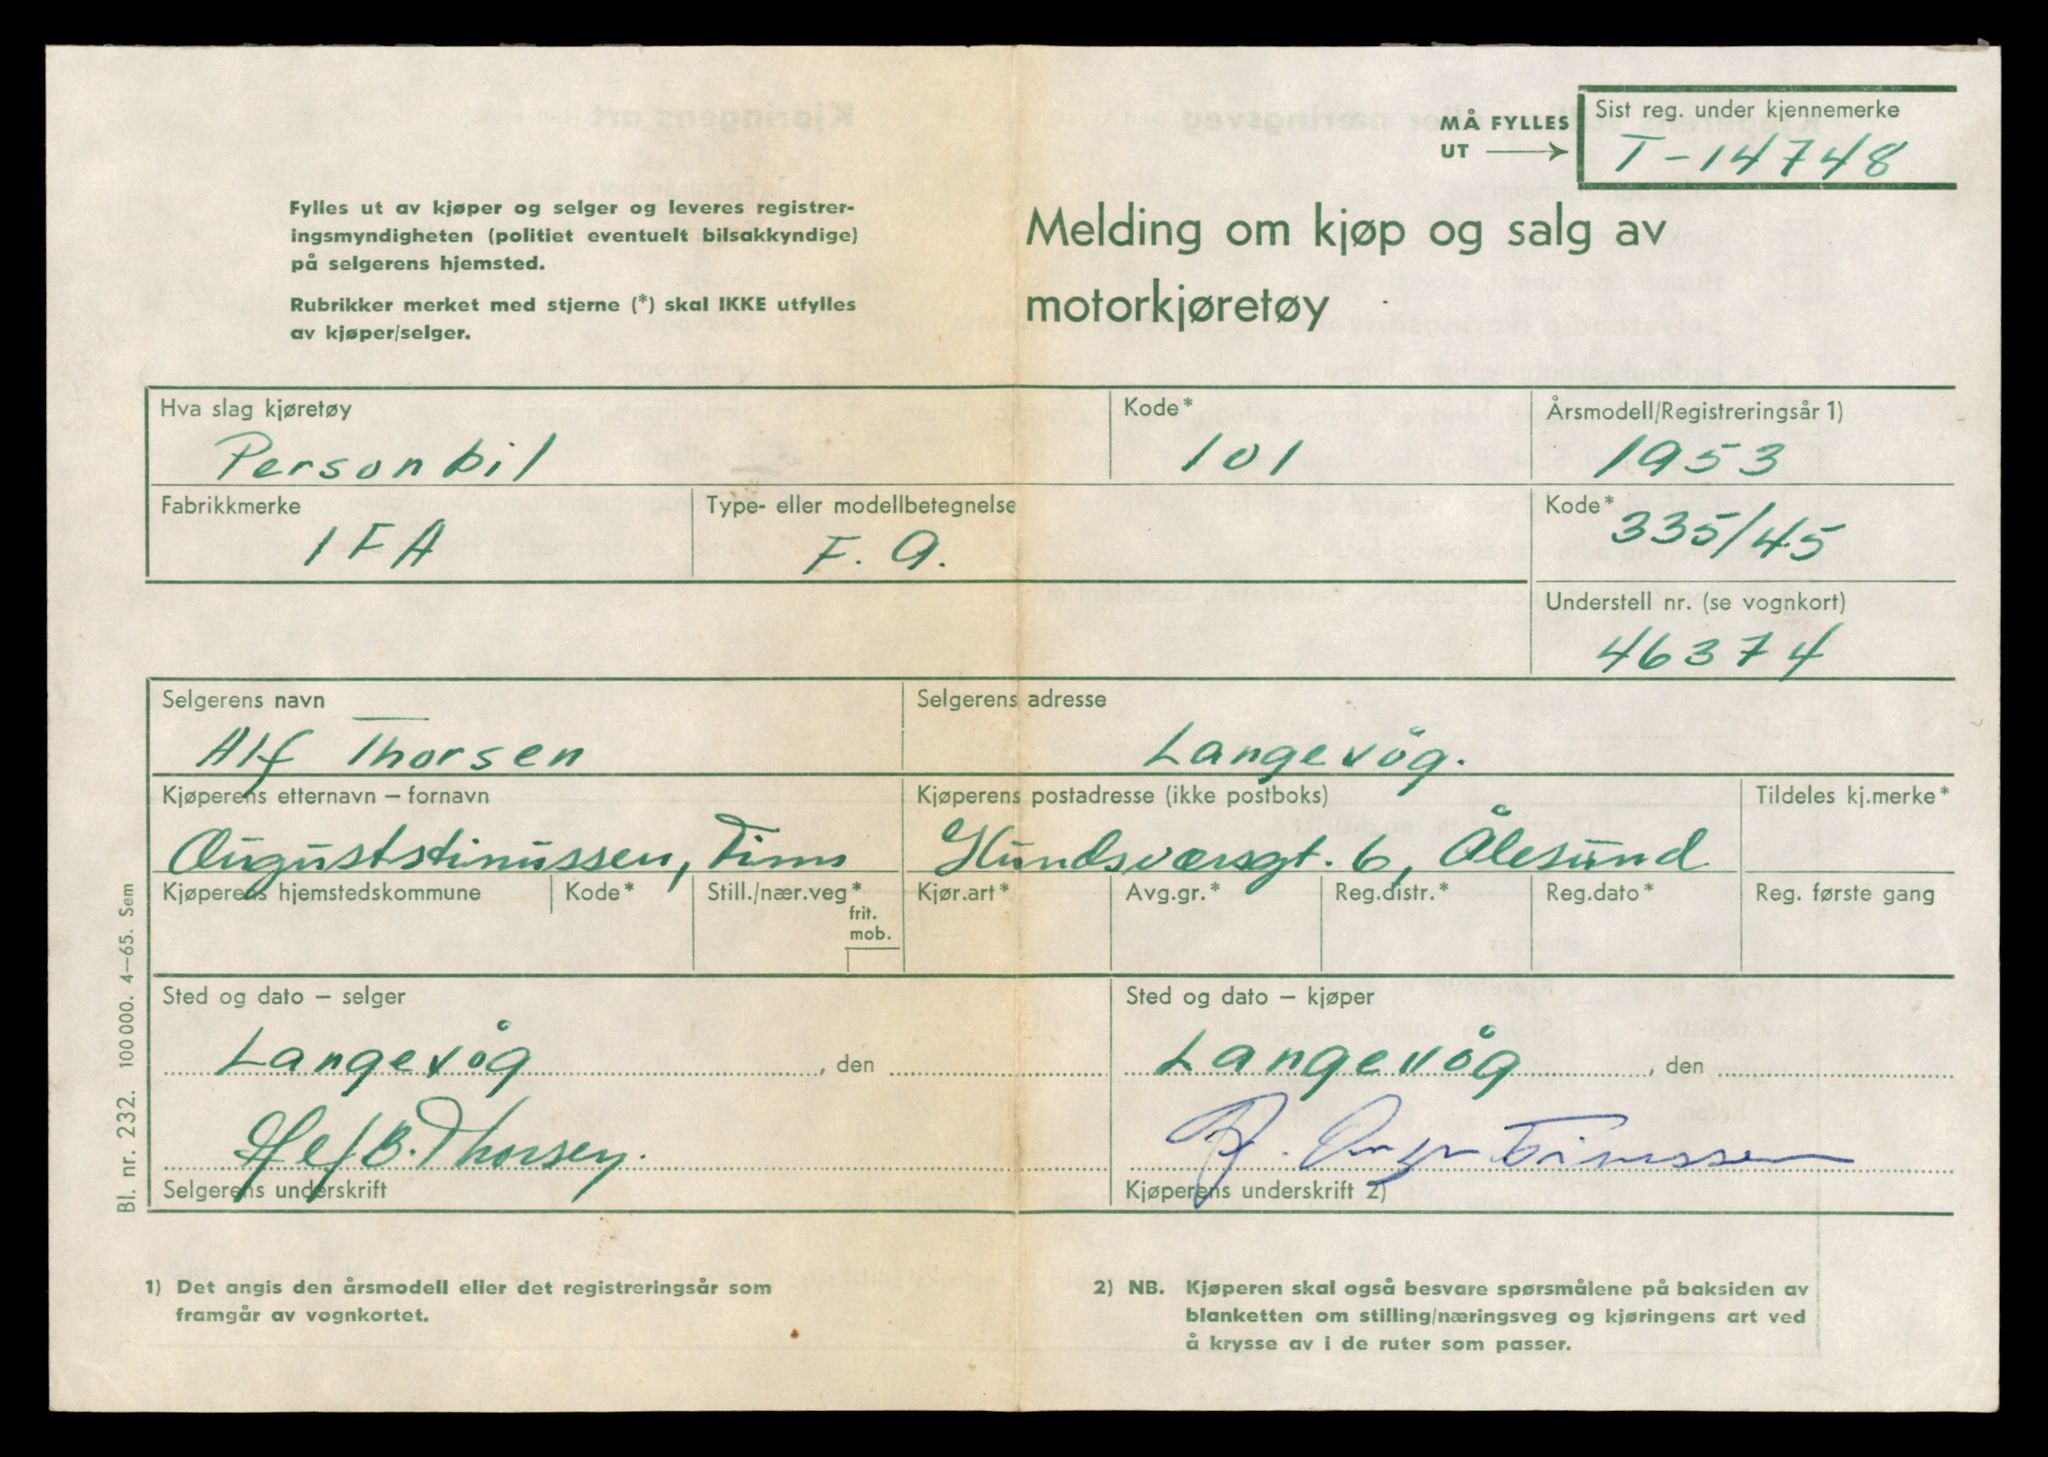 MÅ FYLLES UT
Sist reg. under kjennemerke
T-14748
Fylles ut av kjøper og selger og leveres registrer-
ingsmyndigheten (politiet eventuelt bilsakkyndige)
på selgerens hjemsted.
Rubrikker merket med stjerne (*) skal IKKE utfylles
av kjøper/selger.
Melding om kjøp og salg av
motorkjøretøy
Hva slag kjøretøy Kode* Årsmodell/Registreringsår 1)
Personbil 101 1953
Fabrikkmerke Type- eller modellbetegnelse Kode*
IFA F. 9. 335/45
Understell nr. (se vognkort)
46374
Selgerens navn Selgerens adresse
Alf Thorsen Langevåg.
Kjøperens etternavn – fornavn Kjøperens postadresse (ikke postboks) Tildeles kj.merke*
Auguststinussen, Hundsværsgt. 6, Ålesund
Kjøperens hjemstedskommune Kode* Still./nær.veg* Kjør.art* Avg.gr.* Reg.distr.* Reg.dato* Reg. første gang
frit.
mob.
Sted og dato – selger Sted og dato – kjøper
Langevåg , den Langevåg , den
Alf B. Thorsen.
Selgerens underskrift Kjøperens underskrift 2)
Bl. nr. 232. 100 000. 4–65. Sem
1) Det angis den årsmodell eller det registreringsår som
framgår av vognkortet.
2) NB. Kjøperen skal også besvare spørsmålene på baksiden av
blanketten om stilling/næringsveg og kjøringens art ved
å krysse av i de ruter som passer.